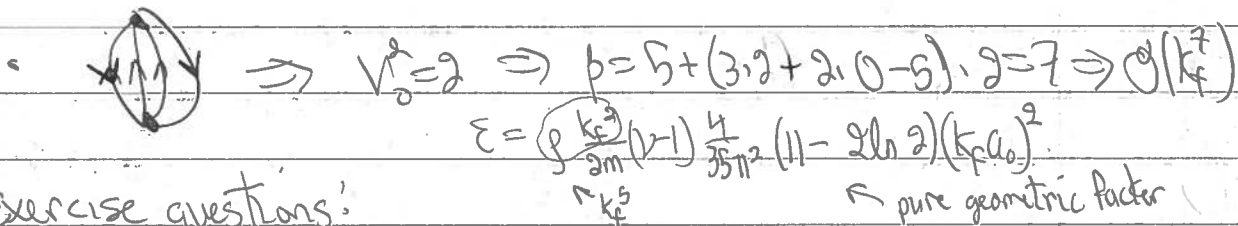 • ⇒ V₀² = 2 ⇒ p = 5 + (3·2 + 2·0 - 5)·2 = 7 ⇒ O(k_f⁷)
ε = ρ k_f²/2m (ν-1) 4/35π² (11 - 2ln 2)(k_f a₀)²
↖ k_f⁵ ↖ pure geometric factor
xercise questions: